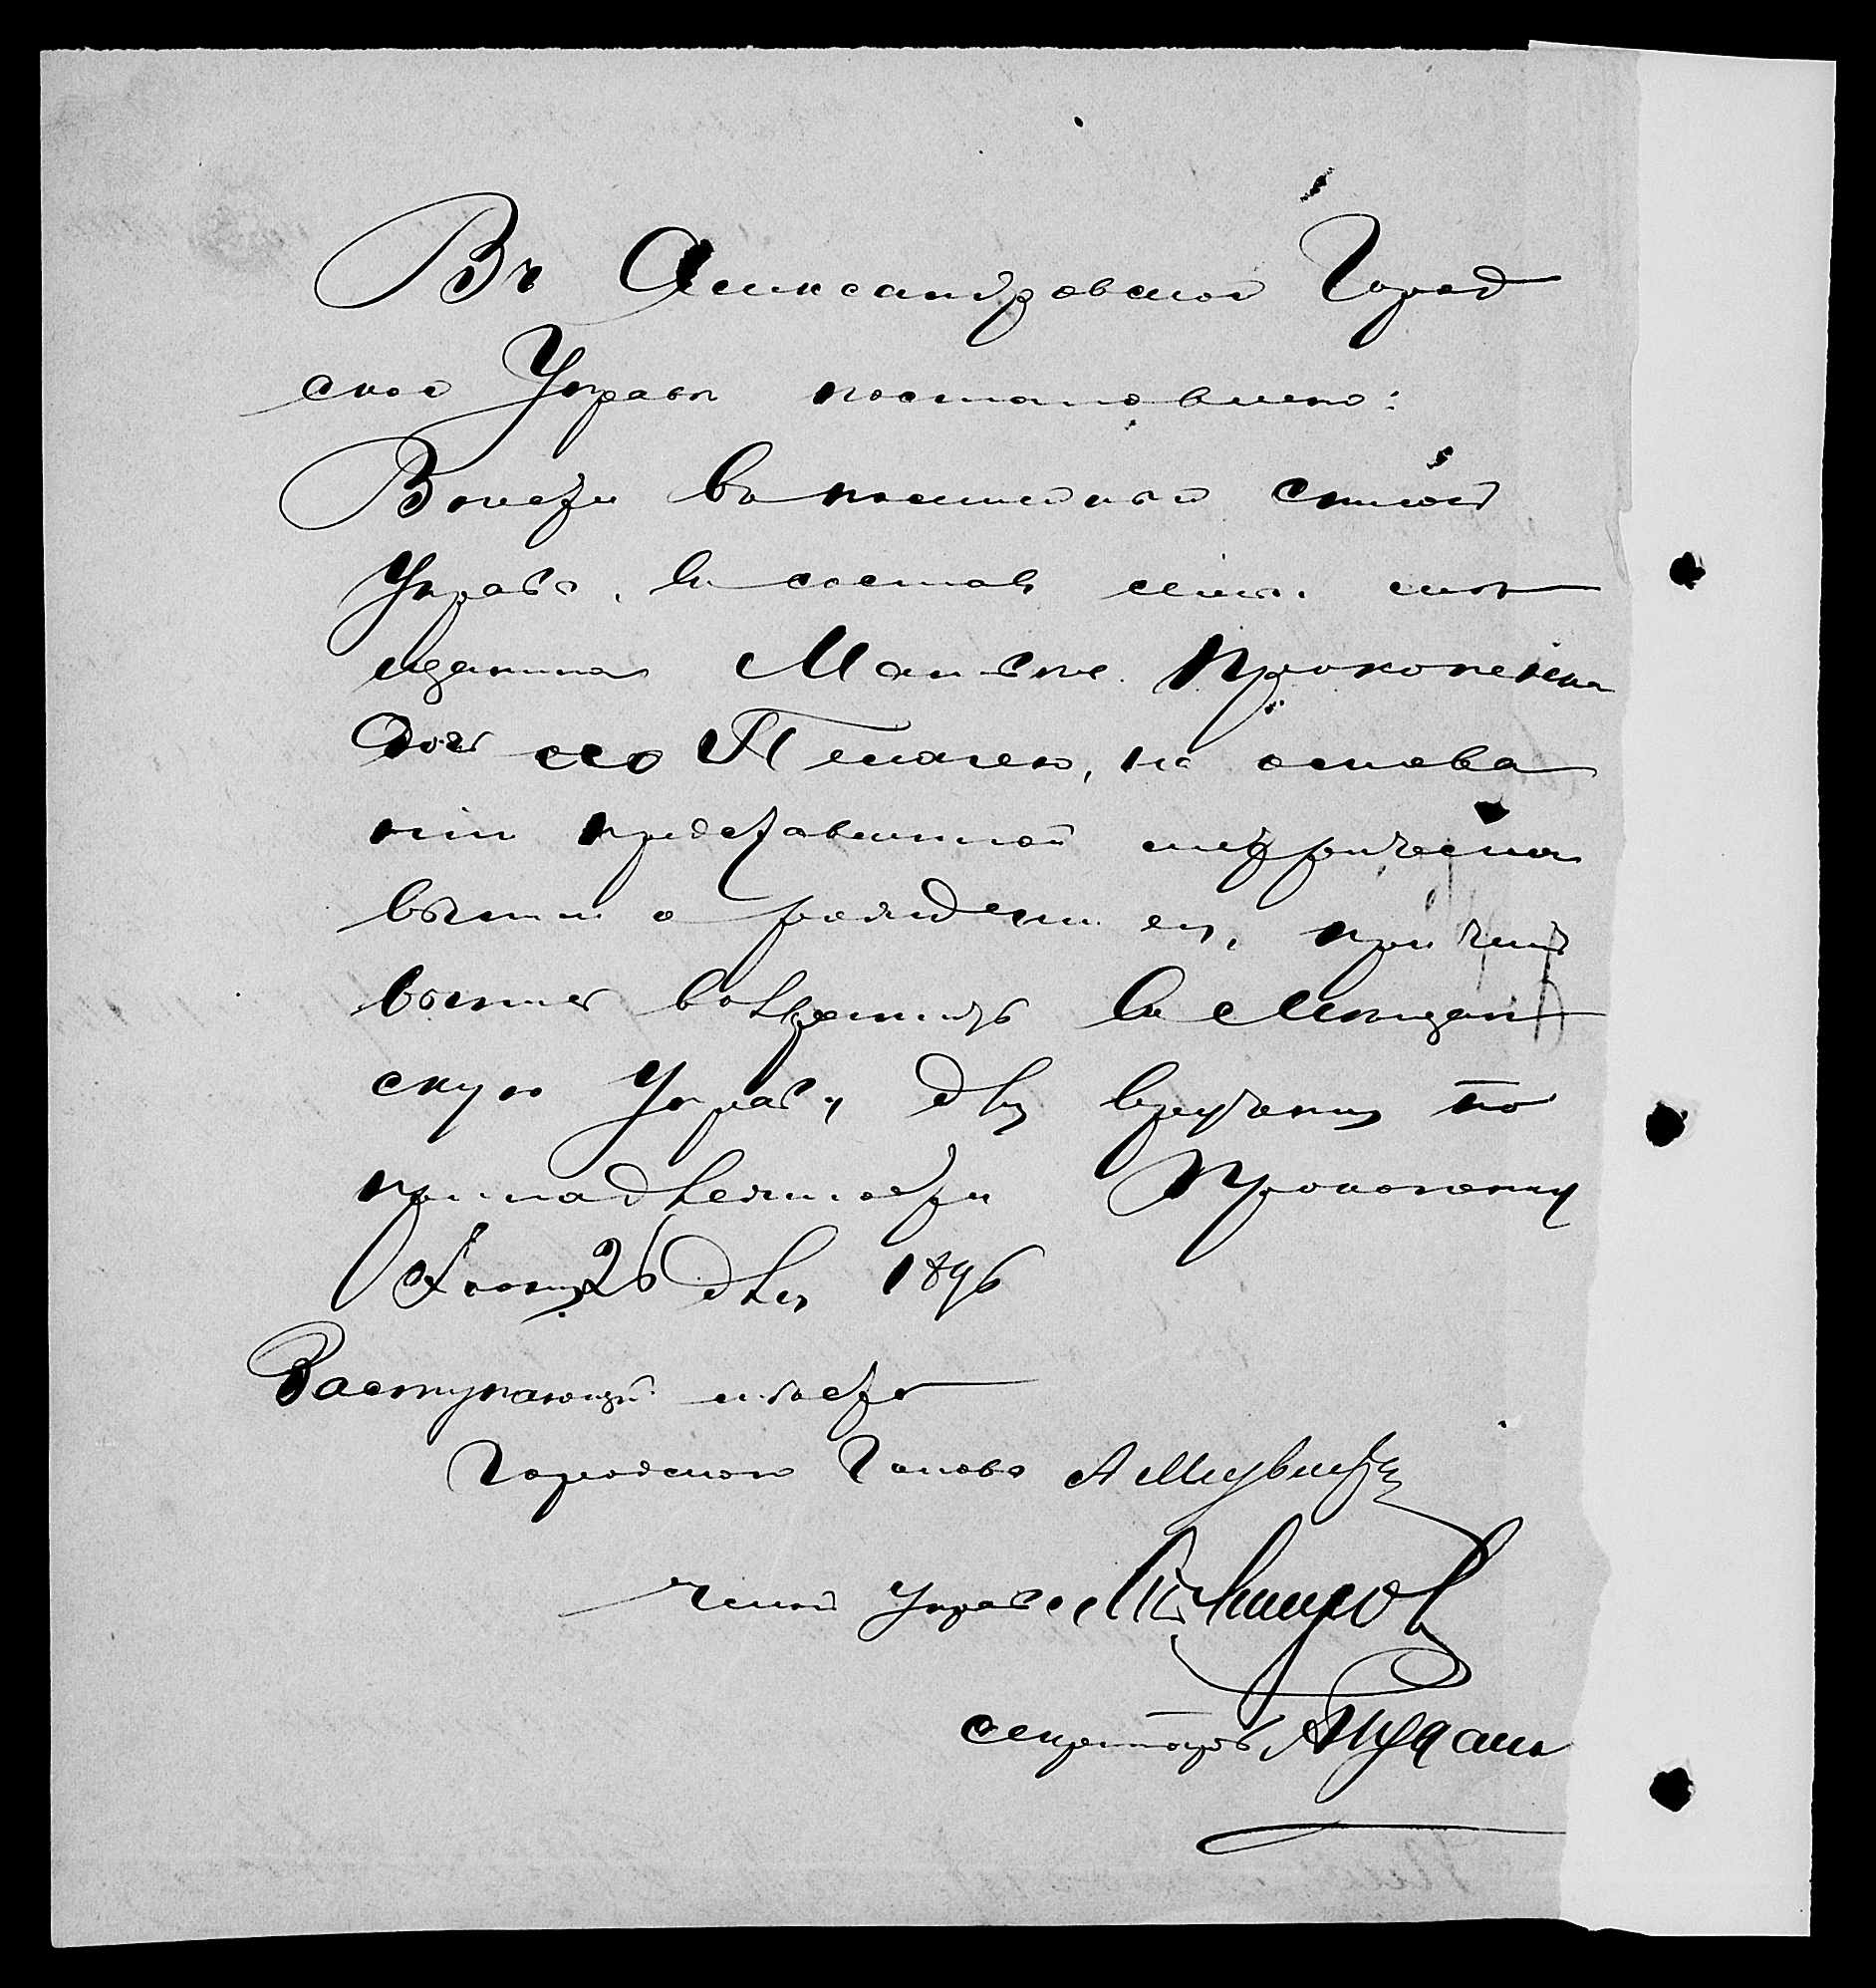 Въ Александровской Город
ской Управѣ постановлено:
Внести въ посемейный списокъ
Управы, въ составъ семьи мѣ
щанина Матвѣя Прокопенка
дочь его Пелагею, на основа
ніи представленной метрической
выписи о рожденіи ея, при чемъ
выпись возвратить въ Мѣщан
скую Управу для врученія по
принадлежности Прокопенку
26 дня 1896
Заступающій мѣсто
Городского Головы А
Членъ Управы
Секретарь